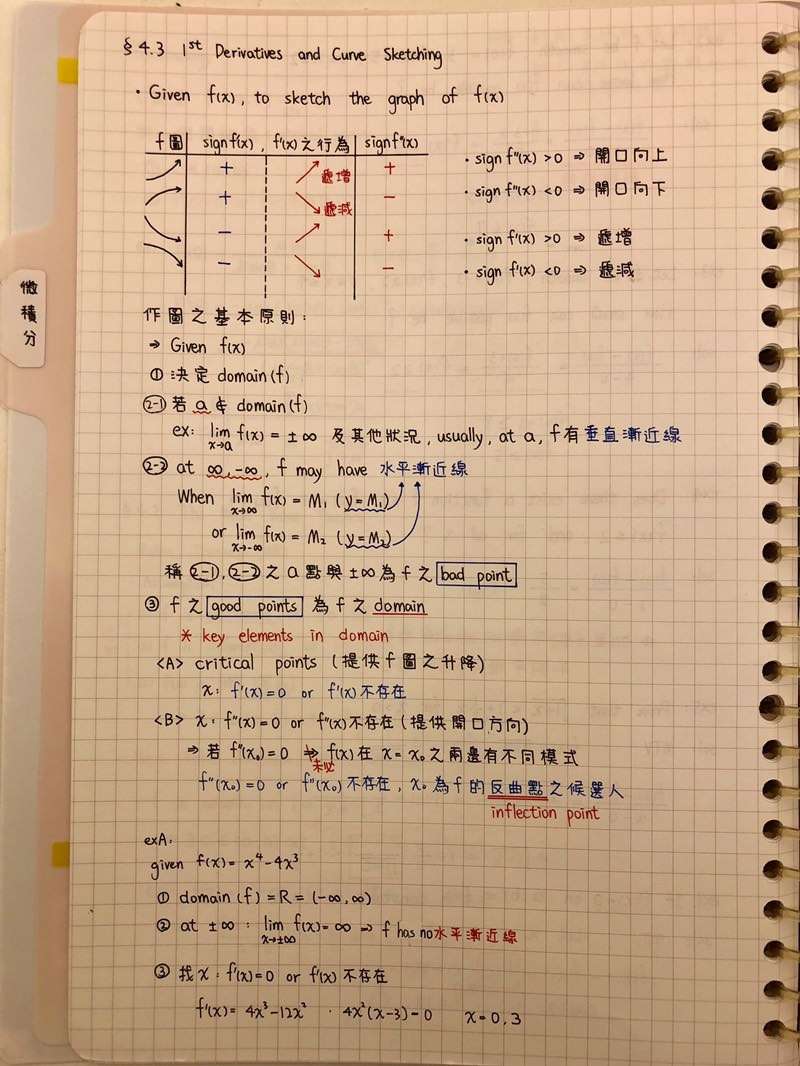 § 4.3 1st Derivatives and Curve Sketching
• Given f(x), to sketch the graph of f(x)
f圖 sign f(x), f'(x)之行為 sign f"(x)
+ 遞增 +
+ 遞減 −
− +
− −
• sign f"(x) >0 ⇒ 開口向上
• sign f"(x) <0 ⇒ 開口向下
• sign f'(x) >0 ⇒ 遞增
• sign f'(x) <0 ⇒ 遞減
微積分
作圖之基本原則:
⇒ Given f(x)
① 決定 domain(f)
2-1 若 a ∉ domain(f)
ex: lim x→a f(x) = ±∞ 及其他狀況, usually, at a, f有垂直漸近線
2-2 at ∞, -∞, f may have 水平漸近線
When lim x→∞ f(x) = M₁ (y=M₁)
or lim x→-∞ f(x) = M₂ (y=M₂)
稱 2-1, 2-2 之a點與±∞為f之 bad point
③ f之 good points 為f之 domain
* key elements in domain
<A> critical points (提供f圖之升降)
x: f'(x)=0 or f'(x)不存在
<B> x: f"(x)=0 or f"(x)不存在(提供開口方向)
⇒ 若 f"(x₀)=0 ⇏ f(x)在 x=x₀之兩邊有不同模式
未必
f"(x₀)=0 or f"(x₀)不存在, x₀為f的反曲點之候選人
inflection point
exA:
given f(x)= x⁴-4x³
① domain (f)=R=(-∞,∞)
② at ±∞ : lim x→±∞ f(x)=∞ ⇒ f has no水平漸近線
③ 找x: f'(x)=0 or f'(x) 不存在
f'(x)= 4x³-12x² · 4x²(x-3)=0 x=0,3